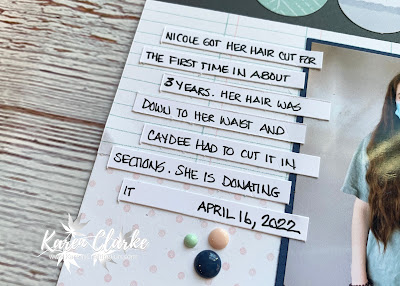 NICOLE GOT HER HAIR CUT FOR
THE FIRST TIME IN ABOUT
3 YEARS. HER HAIR WAS
DOWN TO HER WAIST AND
CAYDEE HAD TO CUT IT IN
SECTIONS. SHE IS DONATING
IT APRIL 16, 2022
Karen Clarke